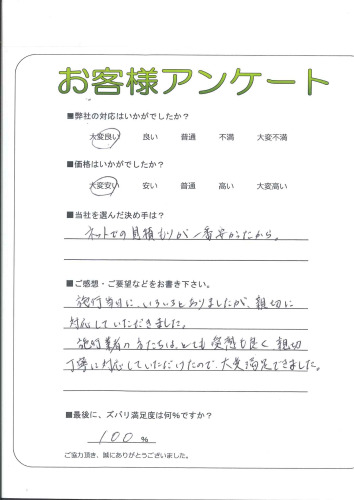 お客様アンケート
■弊社の対応はいかがでしたか？
大変良い 良い 普通 不満 大変不満
■価格はいかがでしたか？
大変安い 安い 普通 高い 大変高い
■当社を選んだ決め手は？
ネットでの見積もりが一番安かったから。
■ご感想・ご要望などをお書き下さい。
施行当日に、いろいろとありましたが、親切に
対応していただきました。
施行業者の方たちは、とても愛想も良く親切
丁寧に対応していただけたので、大変満足できました。
■最後に、ズバリ満足度は何%ですか？
100 %
ご協力頂き、誠にありがとうございました。